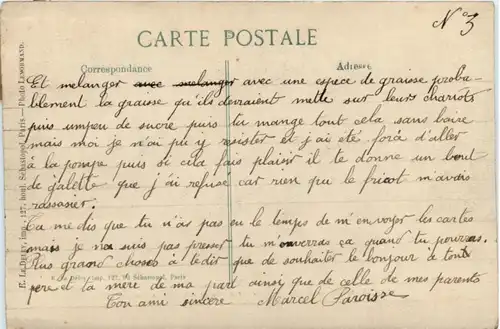 N° 3
CARTE POSTALE
Correspondance
Adresse
Et melanger avec melanger avec une espece de graisse proba-
blement la graisse qu'ils devraient mette sur leurs chariots
puis umpeu de sucre puis tu mange tout cela sans boire
mais moi je n'ai pu y resister et j'ai été forcà d'aller
à la pompe puis si cela fais plaisir il te donne un bout
de galette que j'ai refuse car rien qui le fricot m'avais
rassasier.
Ca me dis que tu n'as pas eu le temps de m'envoyer les cartes
mais je ne suis pas presser tu m'enverras ça quand tu pourras.
Plus grand choses à te dir que de souhaiter le bonjour à ton
pere et la mère de ma part ainsi que de celle de mes parents
Ton ami sincere Marcel Paroisse
Imp., 127, boul. Sébastopol, Paris — Photo LENORMAND.